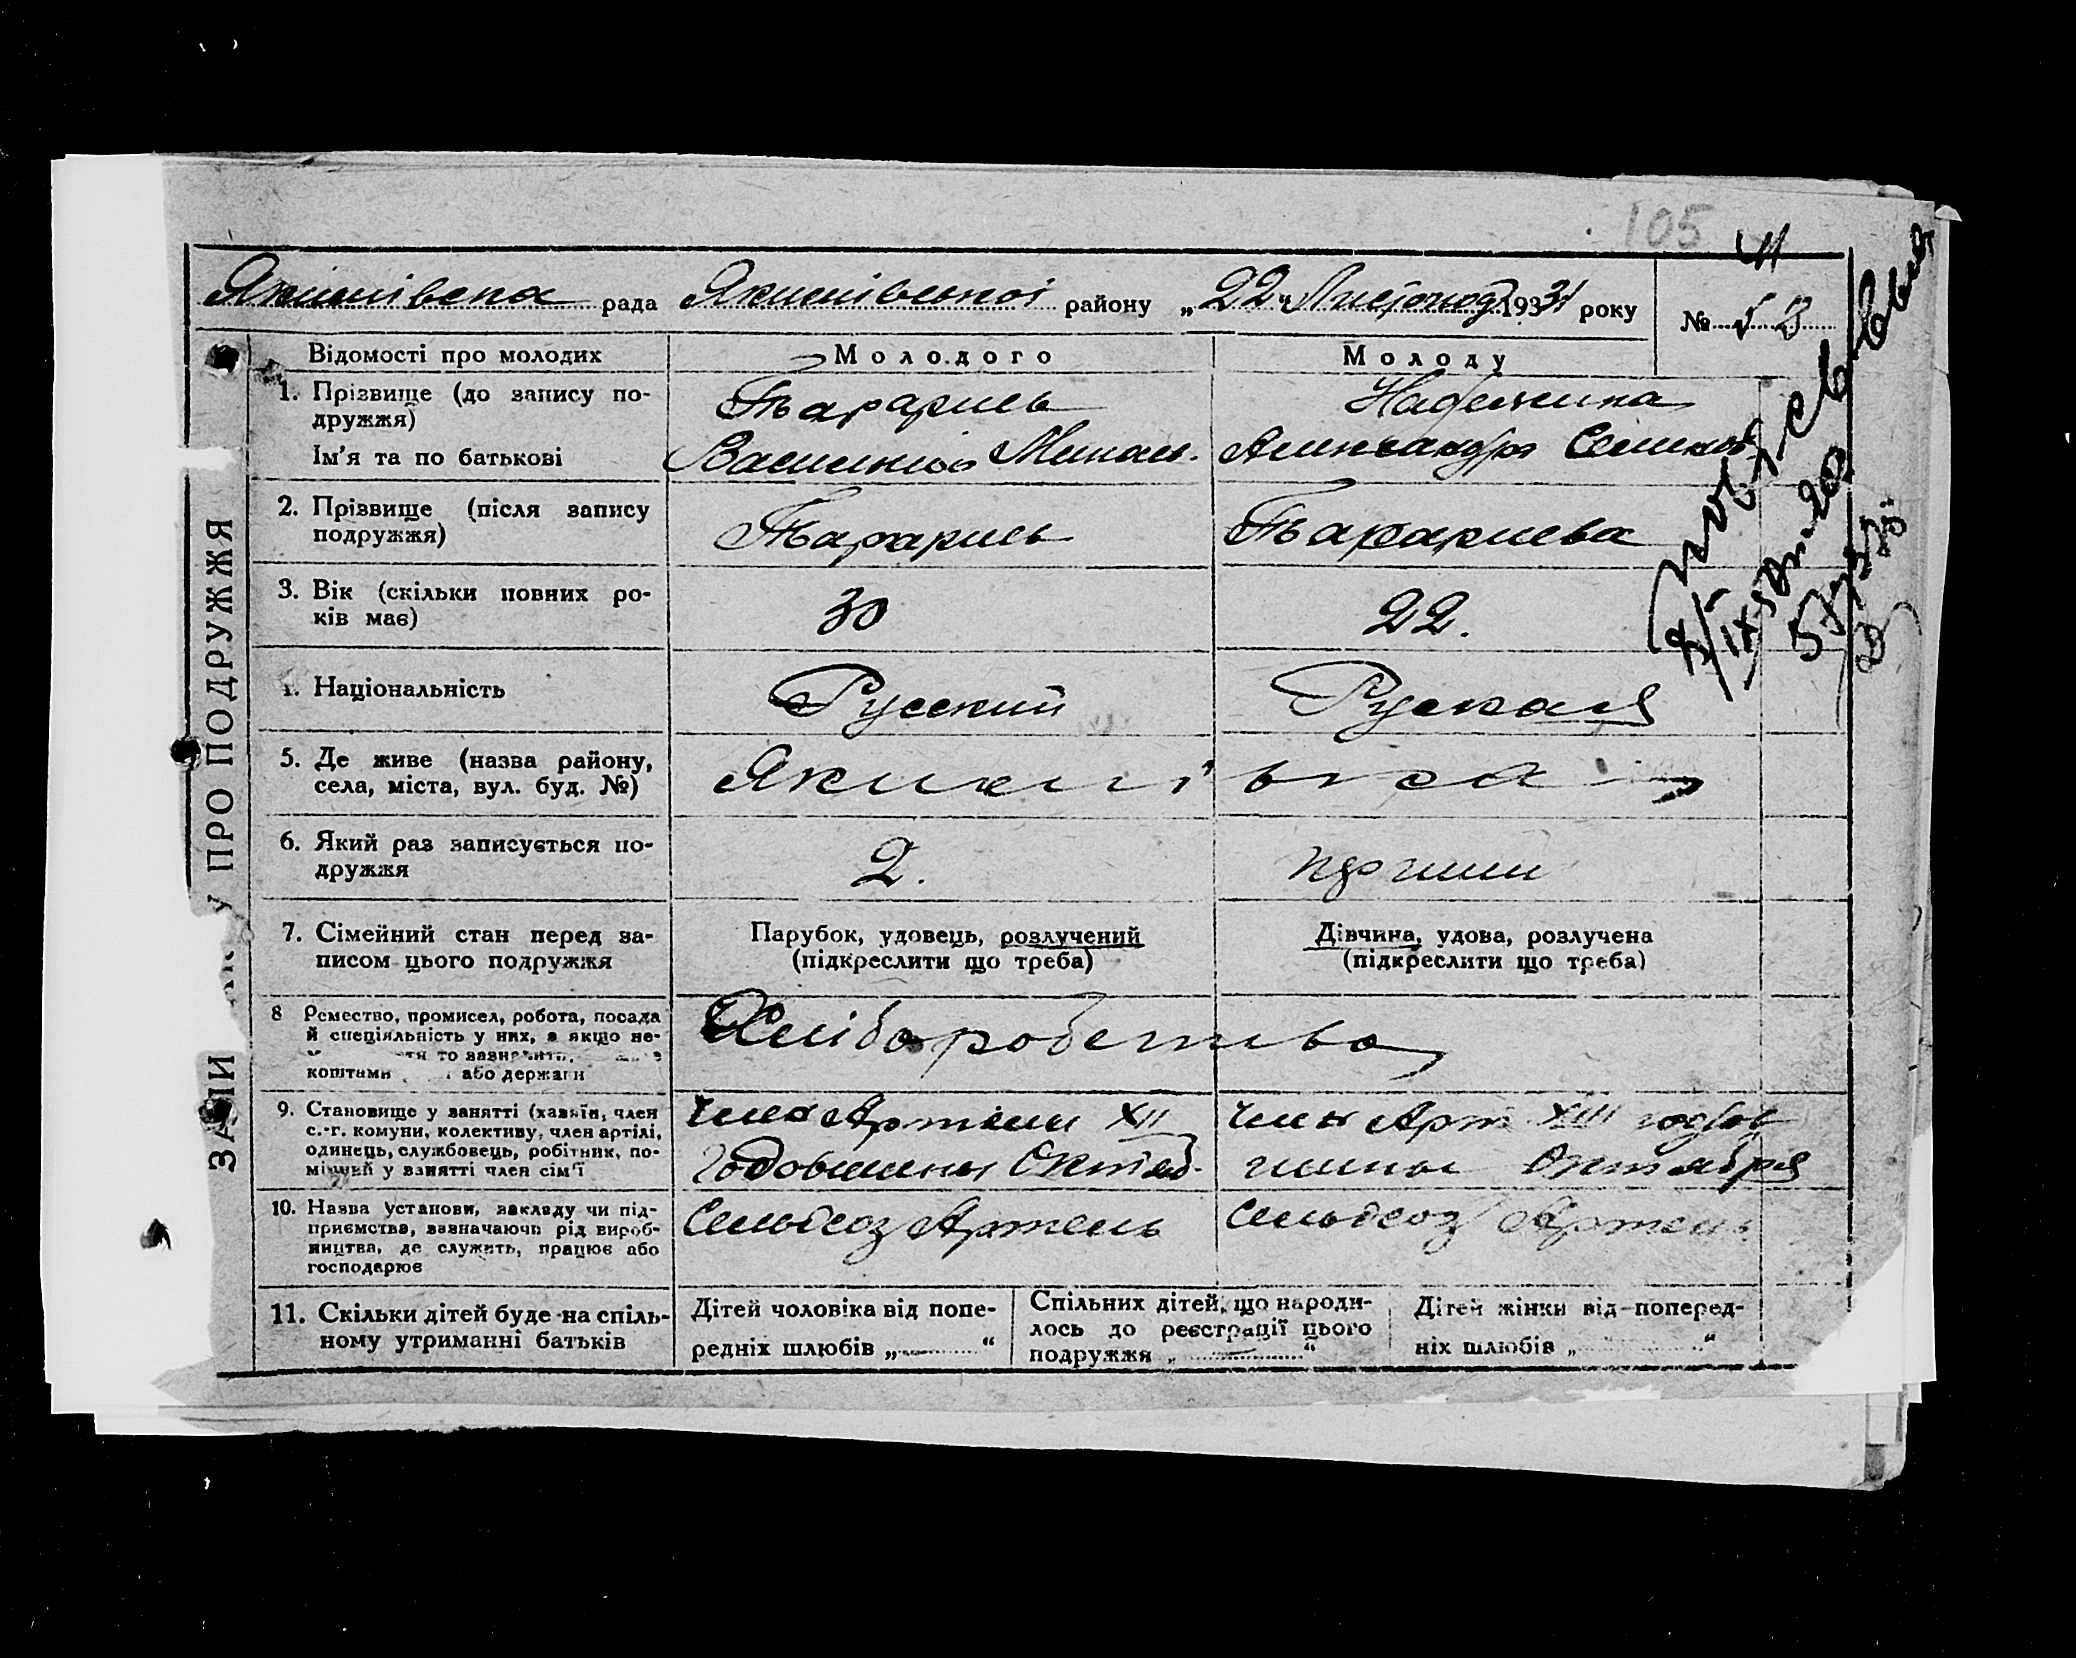 105
Якимівська рада Якимівської району „22“ Листопод 1931 року
№ 53
ПРО ПОДРУЖЖЯ
Відомості про молодих
Молодого
Молоду
1. Прізвище (до запису по-
дружжя)
Надежкина
Ім'я та по батькові
Александра
2. Прізвище (після запису
подружжя)
3. Вік (скільки повних ро-
ків має)
30
22.
Національність
Русский
Руская
5. Де живе (назва району,
села, міста, вул. буд. №)
Якимівка
6. Який раз записується по-
дружжя
2.
7. Сімейний стан перед за-
писом цього подружжя
Парубок, удовець, розлучений
(підкреслити що треба)
Дівчина, удова, розлучена
(підкреслити що треба)
8 Ремество, промисел, робота, посада
й спеціяльність у них, а якщо не-
коштами або держави
Хліборобство
9. Становище у занятті (хазяїн, член
с.-г. комуни, колективу, член артілі,
одинець, службовець, робітник, по-
мічний у занятті член сім'ї
Член Артели XII
Годовшины Октяб.
Член Арт XIII годов
щины Октября
10. Назва установи, закладу чи під-
приємства, зазначаючи рід вироб-
ництва, де служить, працює або
господарює
Сельхоз Артель
Сельхоз Артель
11. Скільки дітей буде на спіль-
ному утриманні батьків
Дітей чоловіка від попе-
редніх шлюбів „ “
Спільних дітей, що народи-
лось до реєстрації цього
подружжя „ “
Дітей жінки від поперед-
ніх шлюбів „ “